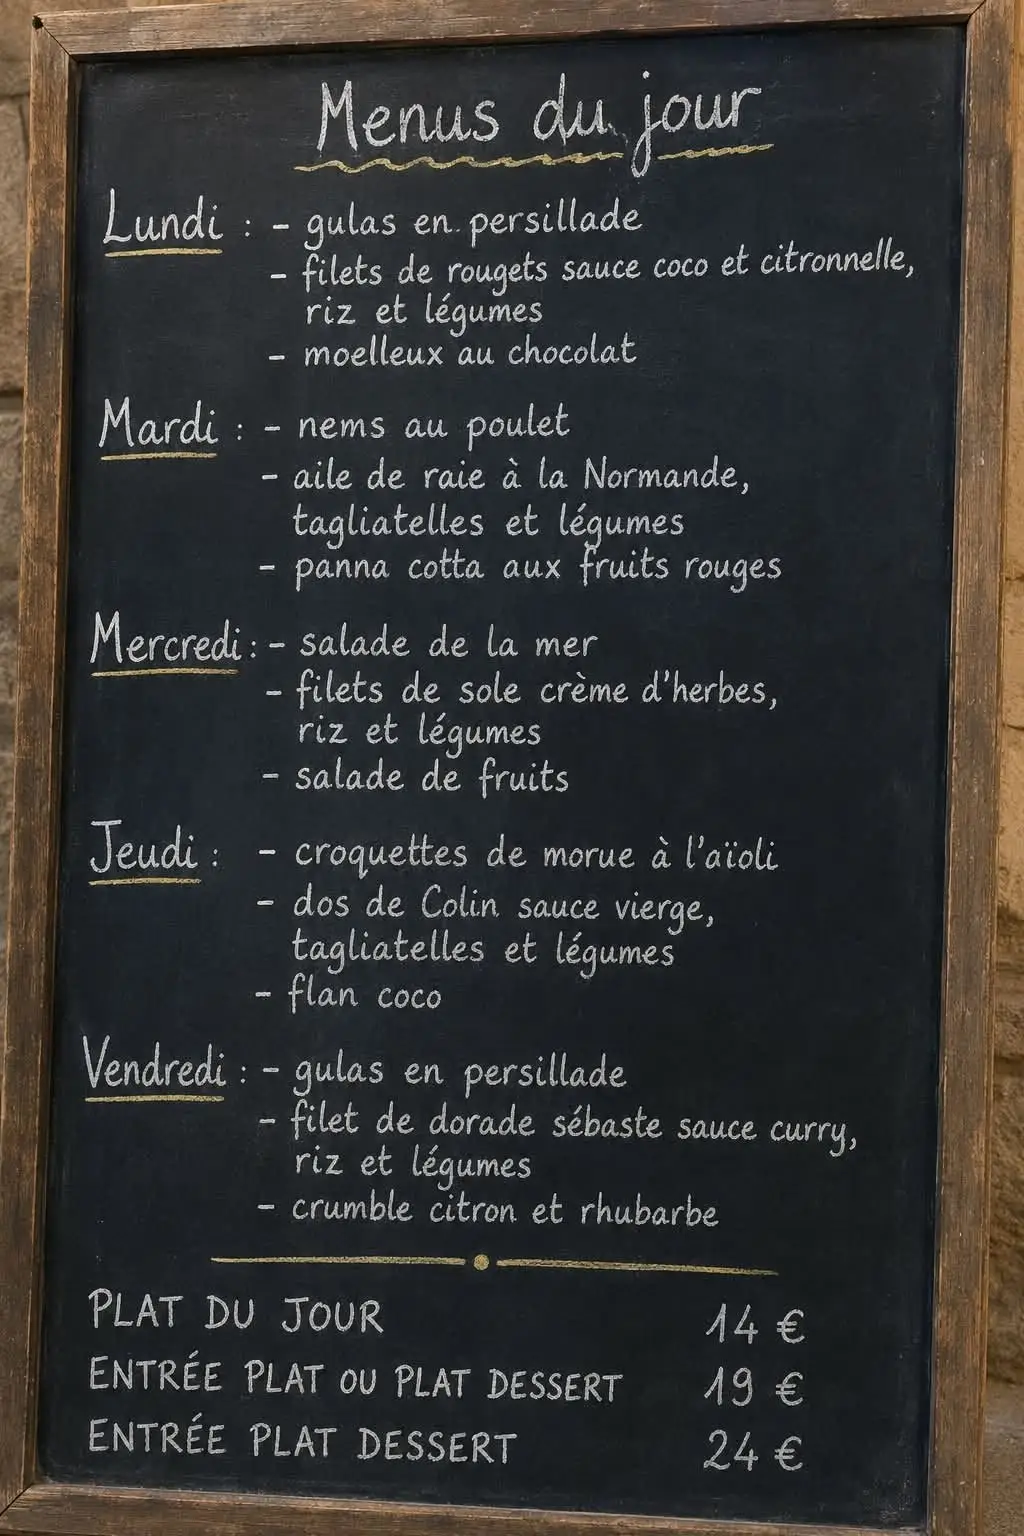 Menus du jour
Lundi : - gulas en persillade
- filets de rougets sauce coco et citronnelle,
riz et légumes
- moelleux au chocolat
Mardi : - nems au poulet
- aile de raie à la Normande,
tagliatelles et légumes
- panna cotta aux fruits rouges
Mercredi : - salade de la mer
- filets de sole crème d'herbes,
riz et légumes
- salade de fruits
Jeudi : - croquettes de morue à l'aïoli
- dos de Colin sauce vierge,
tagliatelles et légumes
- flan coco
Vendredi : - gulas en persillade
- filet de dorade sébaste sauce curry,
riz et légumes
- crumble citron et rhubarbe
PLAT DU JOUR 14 €
ENTRÉE PLAT OU PLAT DESSERT 19 €
ENTRÉE PLAT DESSERT 24 €